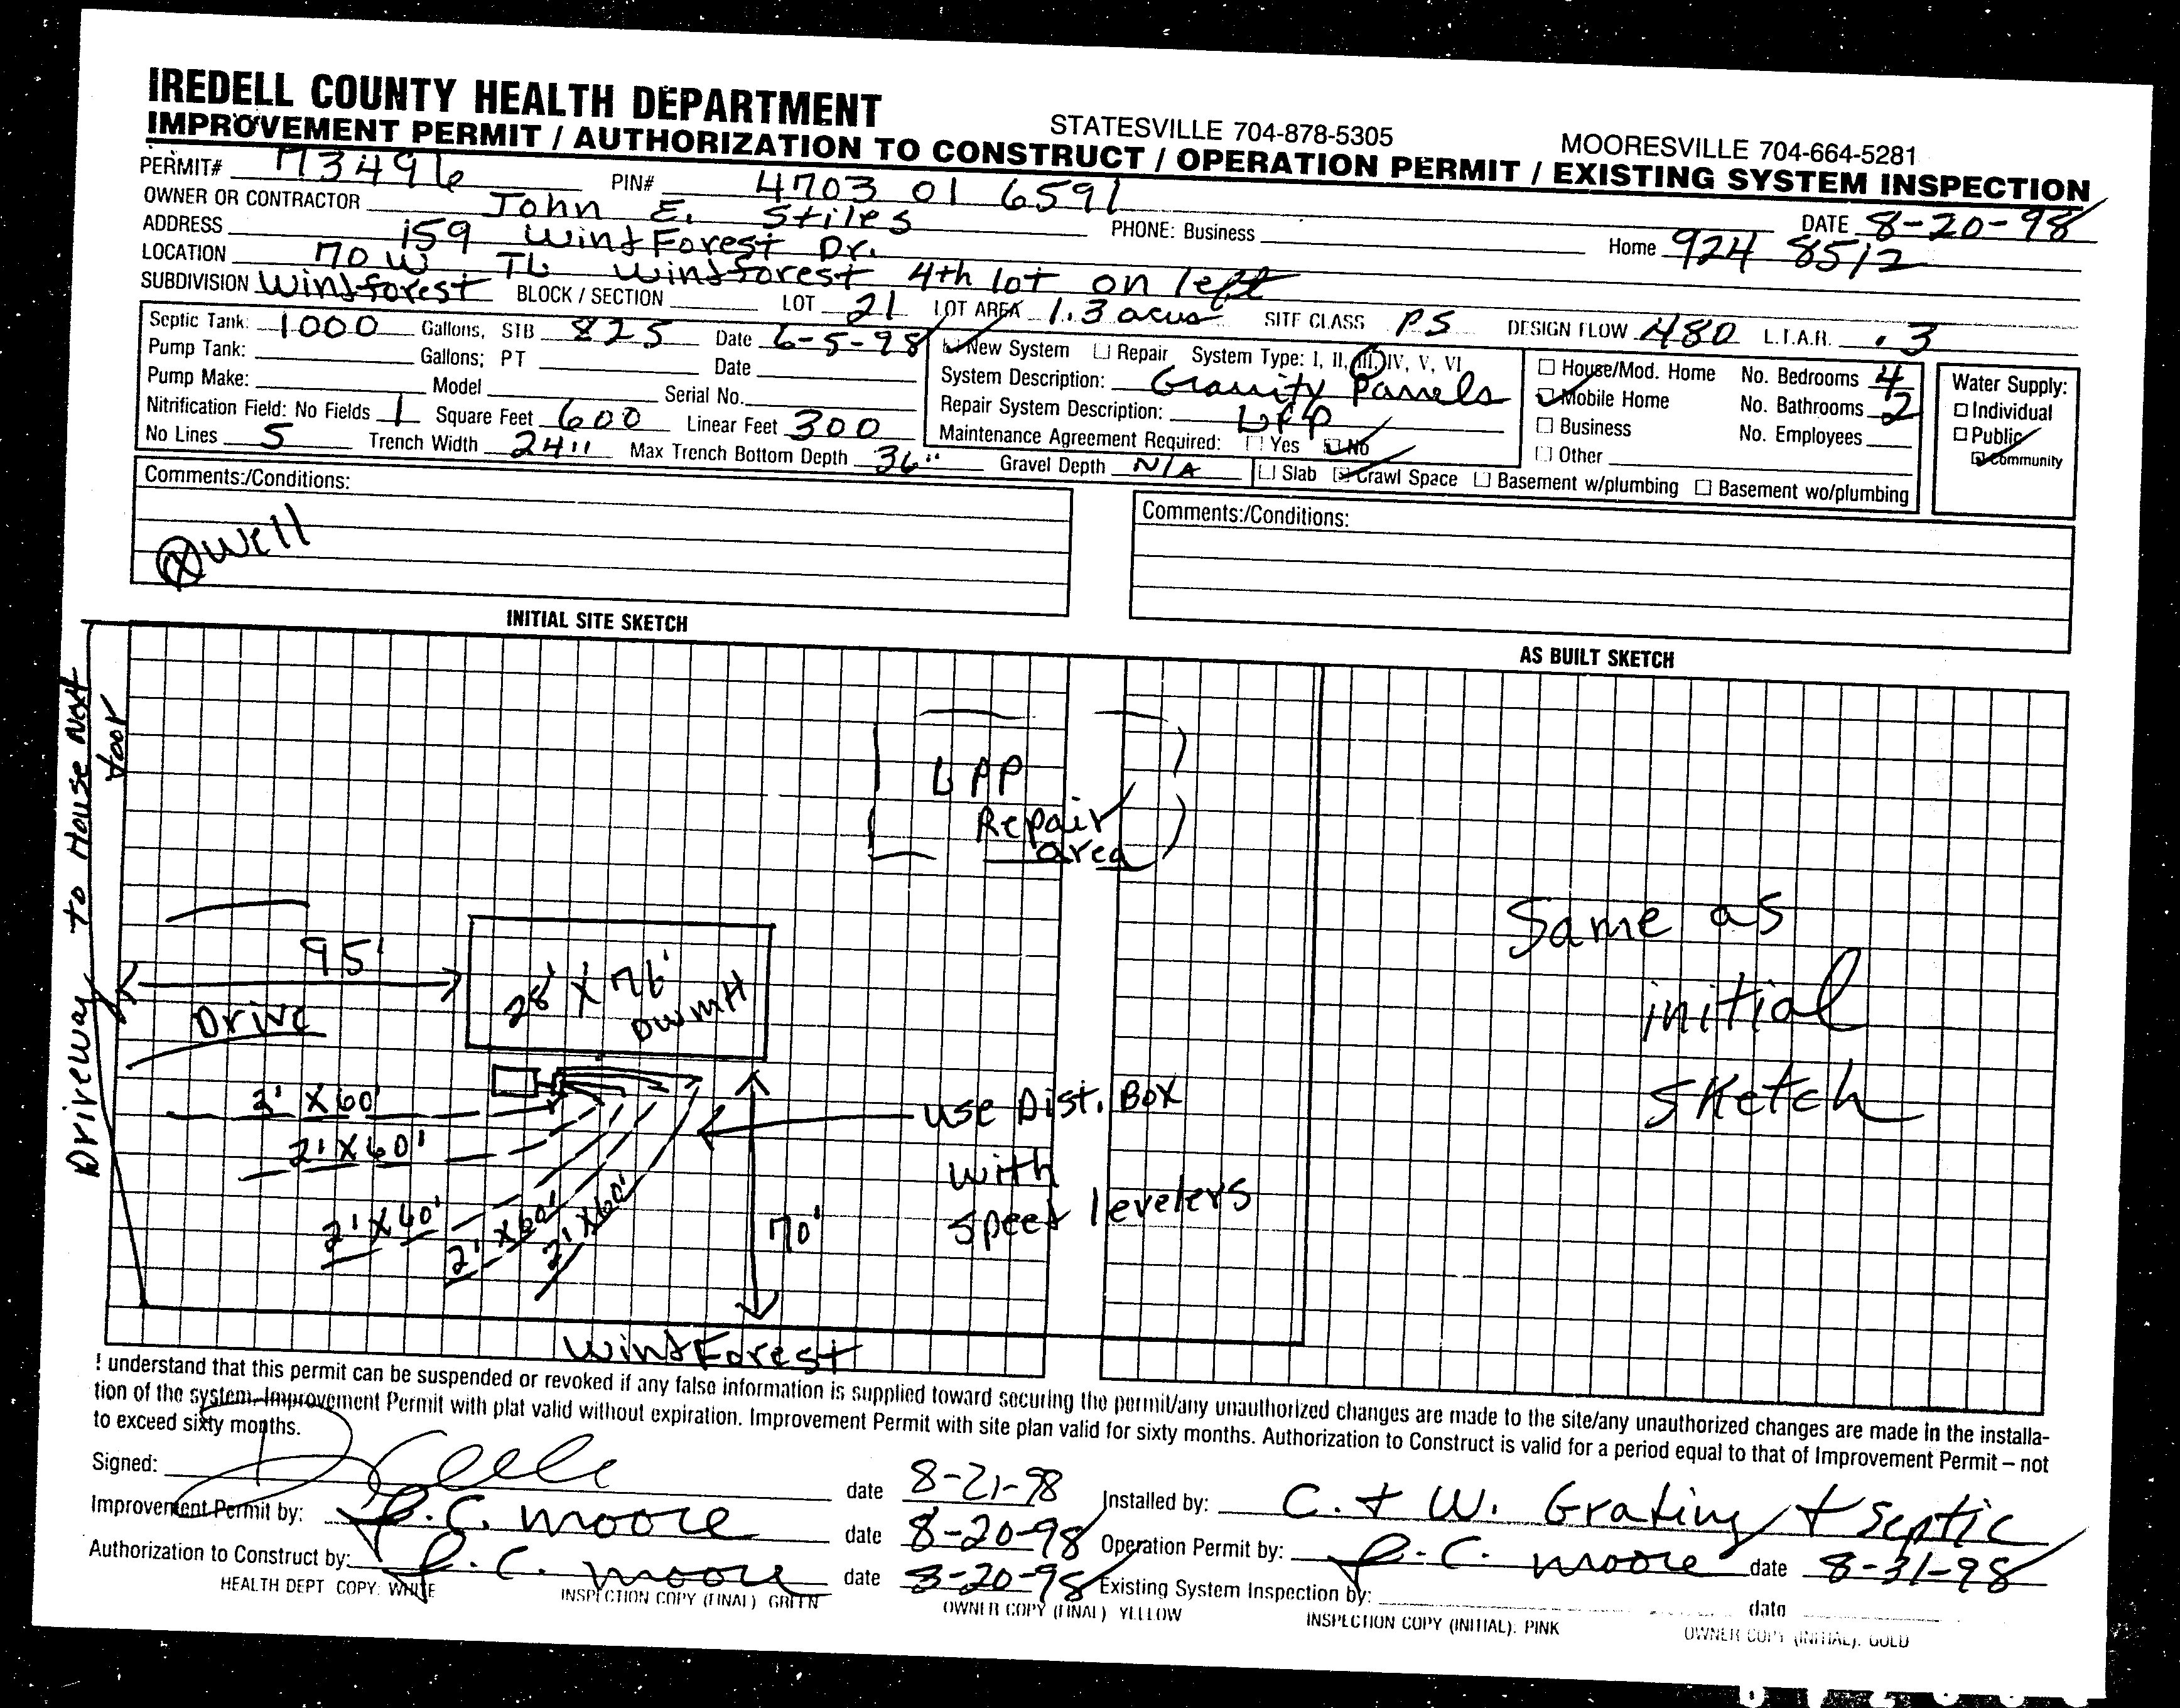 IREDELL COUNTY HEALTH DEPARTMENT
STATESVILLE 704-878-5305 MOORESVILLE 704-664-5281
IMPROVEMENT PERMIT / AUTHORIZATION TO CONSTRUCT / OPERATION PERMIT / EXISTING SYSTEM INSPECTION
PERMIT# 73496 PIN# 4703 01 6591 DATE 8-20-98
OWNER OR CONTRACTOR John E. Stiles PHONE: Business Home 924 8512
ADDRESS 159 WindForest Dr.
LOCATION 70 W TL Windforest 4th lot on left
SUBDIVISION Windforest BLOCK / SECTION LOT 21 LOT AREA 1.3 acres SITE CLASS PS DESIGN FLOW 480 L.T.A.R. .3
Septic Tank: 1000 Gallons, STB 825 Date 6-5-98
Pump Tank: Gallons; PT Date
Pump Make: Model Serial No.
Nitrification Field: No Fields 1 Square Feet 600 Linear Feet 300
No Lines 5 Trench Width 24" Max Trench Bottom Depth 36" Gravel Depth N/A
New System Repair System Type: I, II, III, IV, V, VI
System Description: Gravity Panels
Repair System Description: LPP
Maintenance Agreement Required: Yes No
Slab Crawl Space Basement w/plumbing Basement wo/plumbing
House/Mod. Home No. Bedrooms 4
Mobile Home No. Bathrooms 2
Business No. Employees
Other
Water Supply:
Individual
Public
Community
Comments:/Conditions:
X Well
Comments:/Conditions:
INITIAL SITE SKETCH
AS BUILT SKETCH
Driveway to House Next door
LPP
Repair
area
95'
Drive
28' X 76'
DWMH
2' X 60'
2' X 60'
2' X 60'
2' X 60'
2' X 60'
70'
use Dist. Box
with
speed levelers
WindForest
Same as
initial
sketch
I understand that this permit can be suspended or revoked if any false information is supplied toward securing the permit/any unauthorized changes are made to the site/any unauthorized changes are made in the installa-
tion of the system. Improvement Permit with plat valid without expiration. Improvement Permit with site plan valid for sixty months. Authorization to Construct is valid for a period equal to that of Improvement Permit – not
to exceed sixty months.
Signed: date 8-21-98 Installed by: C. + W. Grading + Septic
Improvement Permit by: R.C. Moore date 8-20-98 Operation Permit by: R.C. Moore date 8-31-98
Authorization to Construct by: R.C. Moore date 8-20-98 Existing System Inspection by: date
HEALTH DEPT COPY: WHITE INSPECTION COPY (FINAL) GREEN OWNER COPY (FINAL) YELLOW INSPECTION COPY (INITIAL): PINK OWNER COPY (INITIAL): GOLD